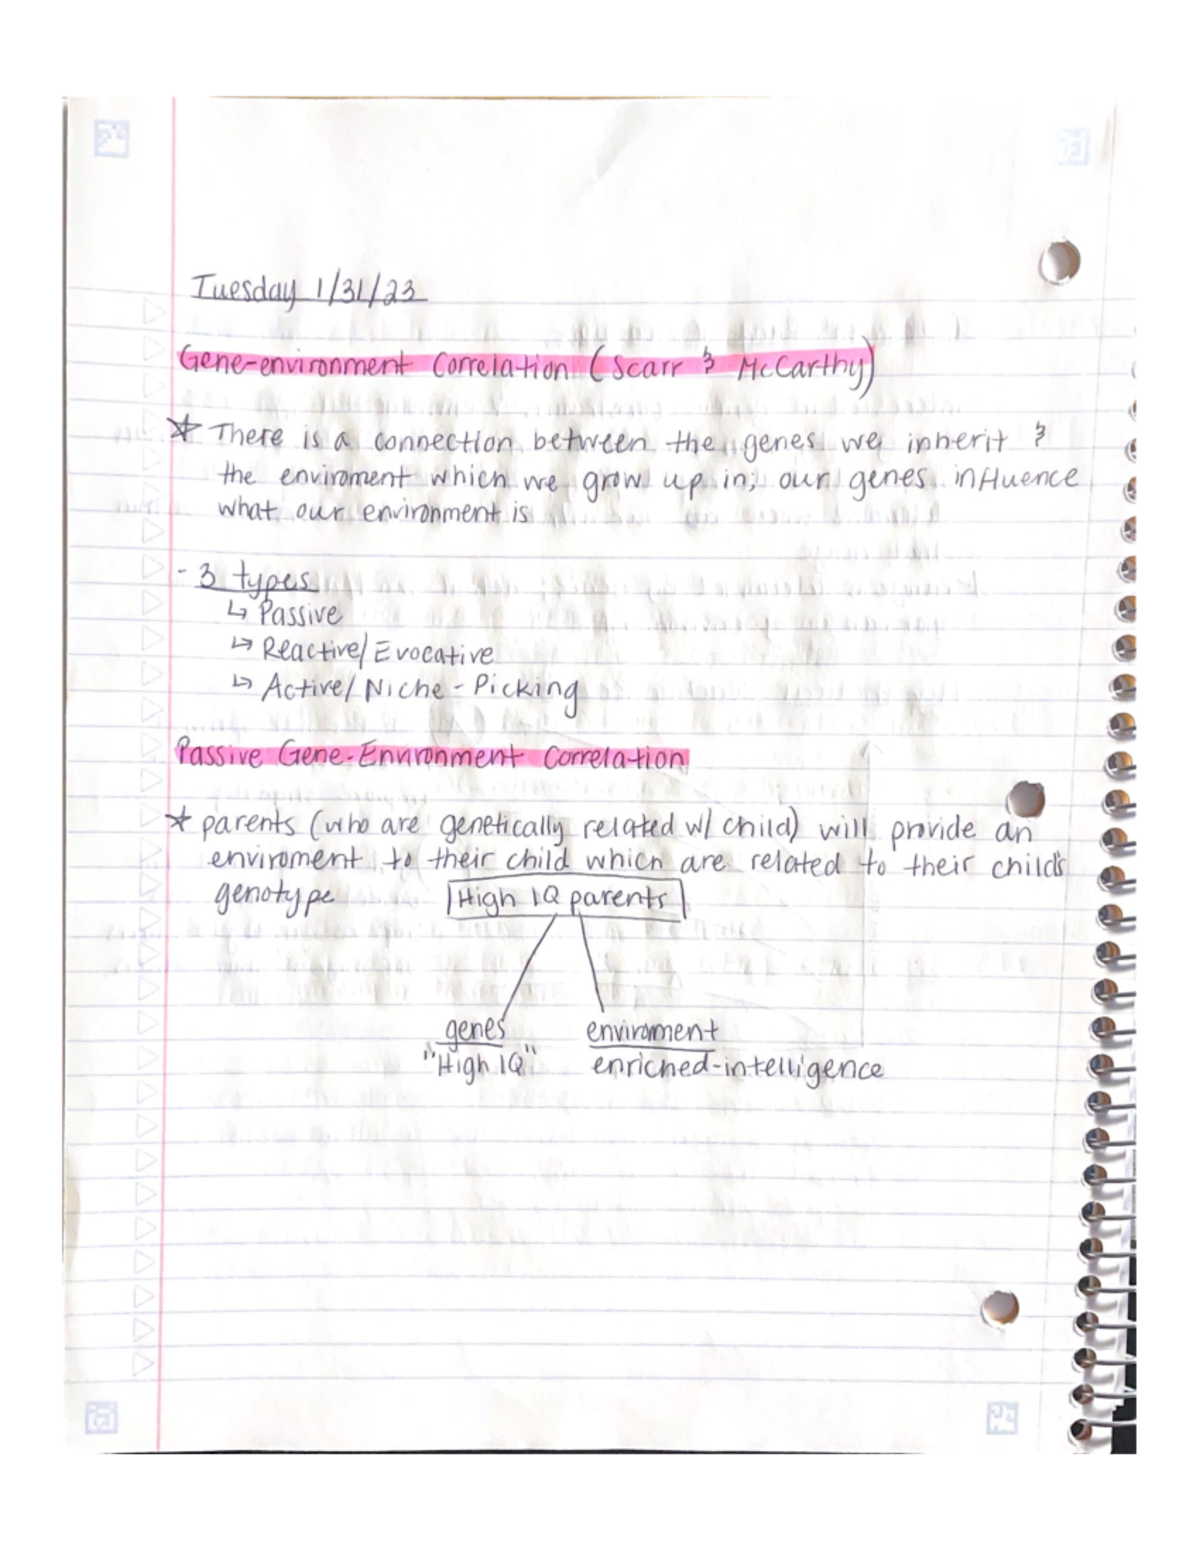 Tuesday 1/31/23
Gene-environment Correlation (Scarr & McCarthy)
* There is a connection between the genes we inherit &
the enviroment which we grow up in; our genes influence
what our environment is
- 3 types
↳ Passive
↳ Reactive/Evocative
↳ Active/Niche-Picking
Passive Gene-Environment Correlation
* parents (who are genetically related w/ child) will provide an
enviroment to their child which are related to their child's
genotype
High IQ parents
genes enviroment
"High IQ" enriched-intelligence